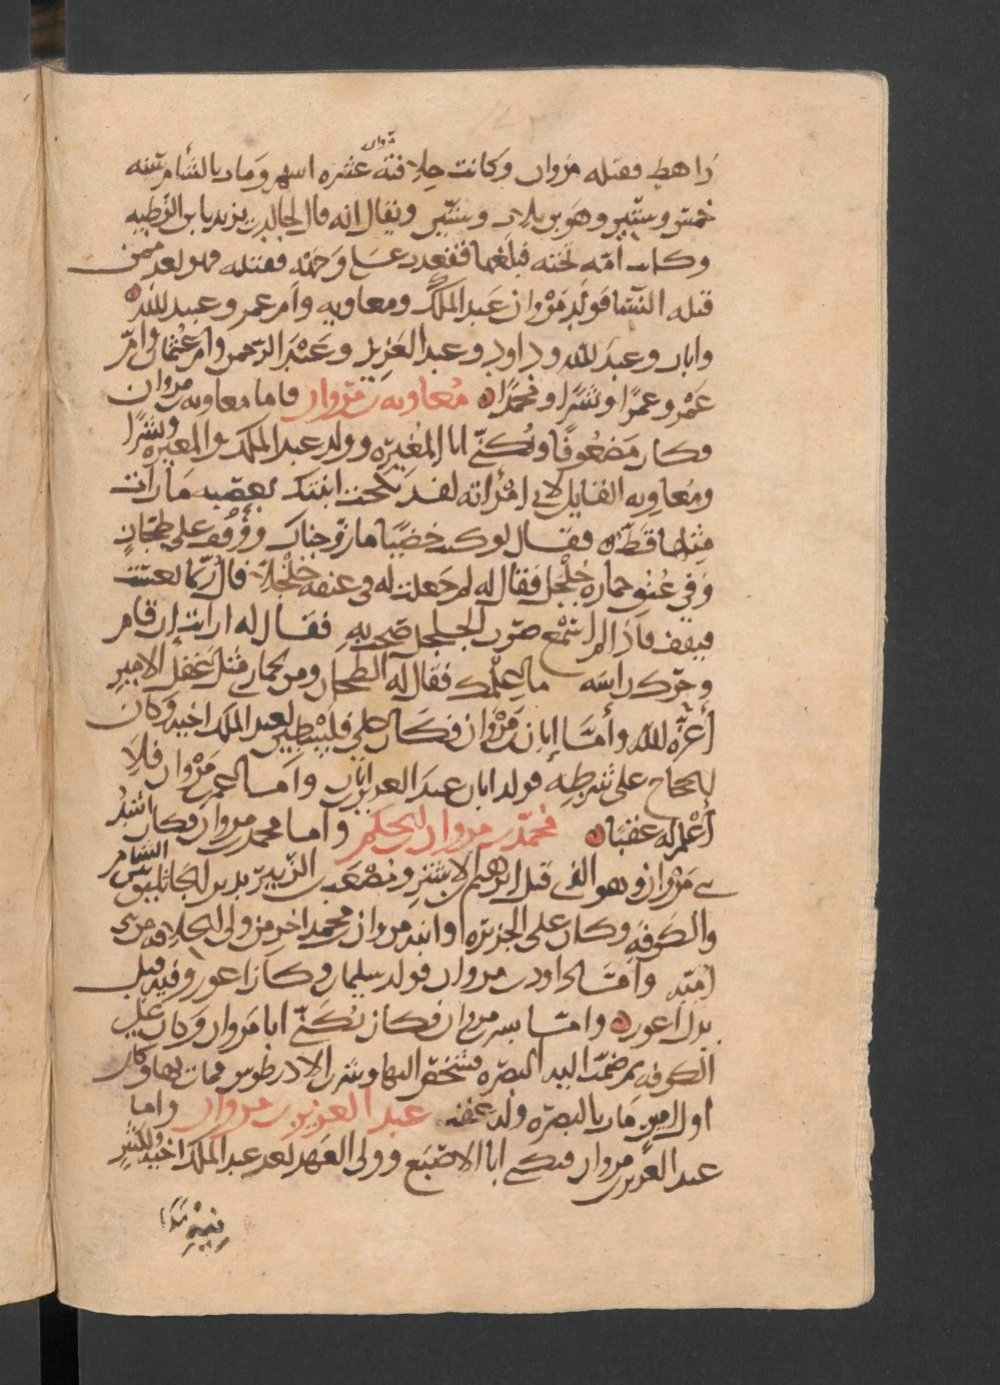 مروان
راهط فقتله مروان وكانت خلافته عشره اشهر ومات بالشام سنه
خمس وستين وهو بن ثلاث وستين ويقال انه قال لخالد بن يزيد يابن الرطبه
وكانت امه تحته فبلغها فقعدت على وجهه فقتلته فهو يعد فيمن
قتله النسا فولد مروان عبد الملك ومعاويه وام عمر وعبيد الله
وابان وعبد الله وداود وعبد العزيز وعبد الرحمن وام عثمان وام
عمرو وعمرًا وبشرًا ومحمدًا معاويه بن مروان فاما معاويه بن مروان
فكان مضعوفًا ويكنى ابا المغيره وولد عبد الملك والمغيره وبشرًا
ومعاويه القايل لابي امراته لقد نكحت ابنتك بعصبه ما رات
مثلها قط فقال لو كنت خصيًا ما زوجناك ووقف على طحان
وفي عنق حماره جلجل فقال له لم جعلت له في عنقه جلجلًا قال ربما لعبت
فيقف فاذا لم اسمع صوت الجلجل صحت به فقال له ارايت ان قام
وحرك راسه ما علمك فقال له الطحان ومن لحماري بمثل عقل الامير
اعزه الله واما ابان بن مروان فكان على فلسطين لعبد الملك اخيه وكان
الحجاج على شرطه فولد ابان عبد العزيز بن ابان واما عمر بن مروان فلا
اعلم له عقبًا محمد بن مروان بن الحكم واما محمد بن مروان فكان اشد
بني مروان وهو الذي قتل ابرهيم بن الاشتر ومصعب بن الزبير بدير الجاثليق بين الشام
والكوفه وكان على الجزيره وابنه مروان بن محمد اخر من ولي الخلافه من بني
اميه واما داود بن مروان فولد سليمان وكان اعور وفيه قيل
بدل اعور واما بشر بن مروان فكان يكنى ابا مروان وكان على
الكوفه ثم ضمت اليه البصره فشخص اليها وشرب الاذرطوس فمات بها وكان
اول امير مات بالبصره وله عقب عبد العزيز بن مروان واما
عبد العزيز بن مروان فيكنى ابا الاصبغ وولي العهد بعد عبد الملك اخيه ولكثير